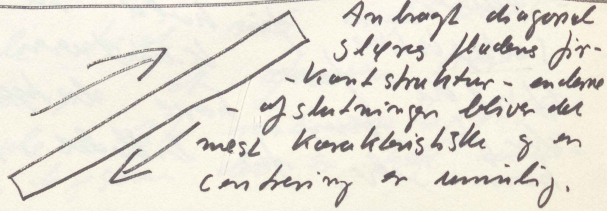 Anbragt diagonal
sløres fladens fir-
-kantstruktur - enderne
- afslutningen bliver det
mest karakteristiske og en
centrering er umulig.